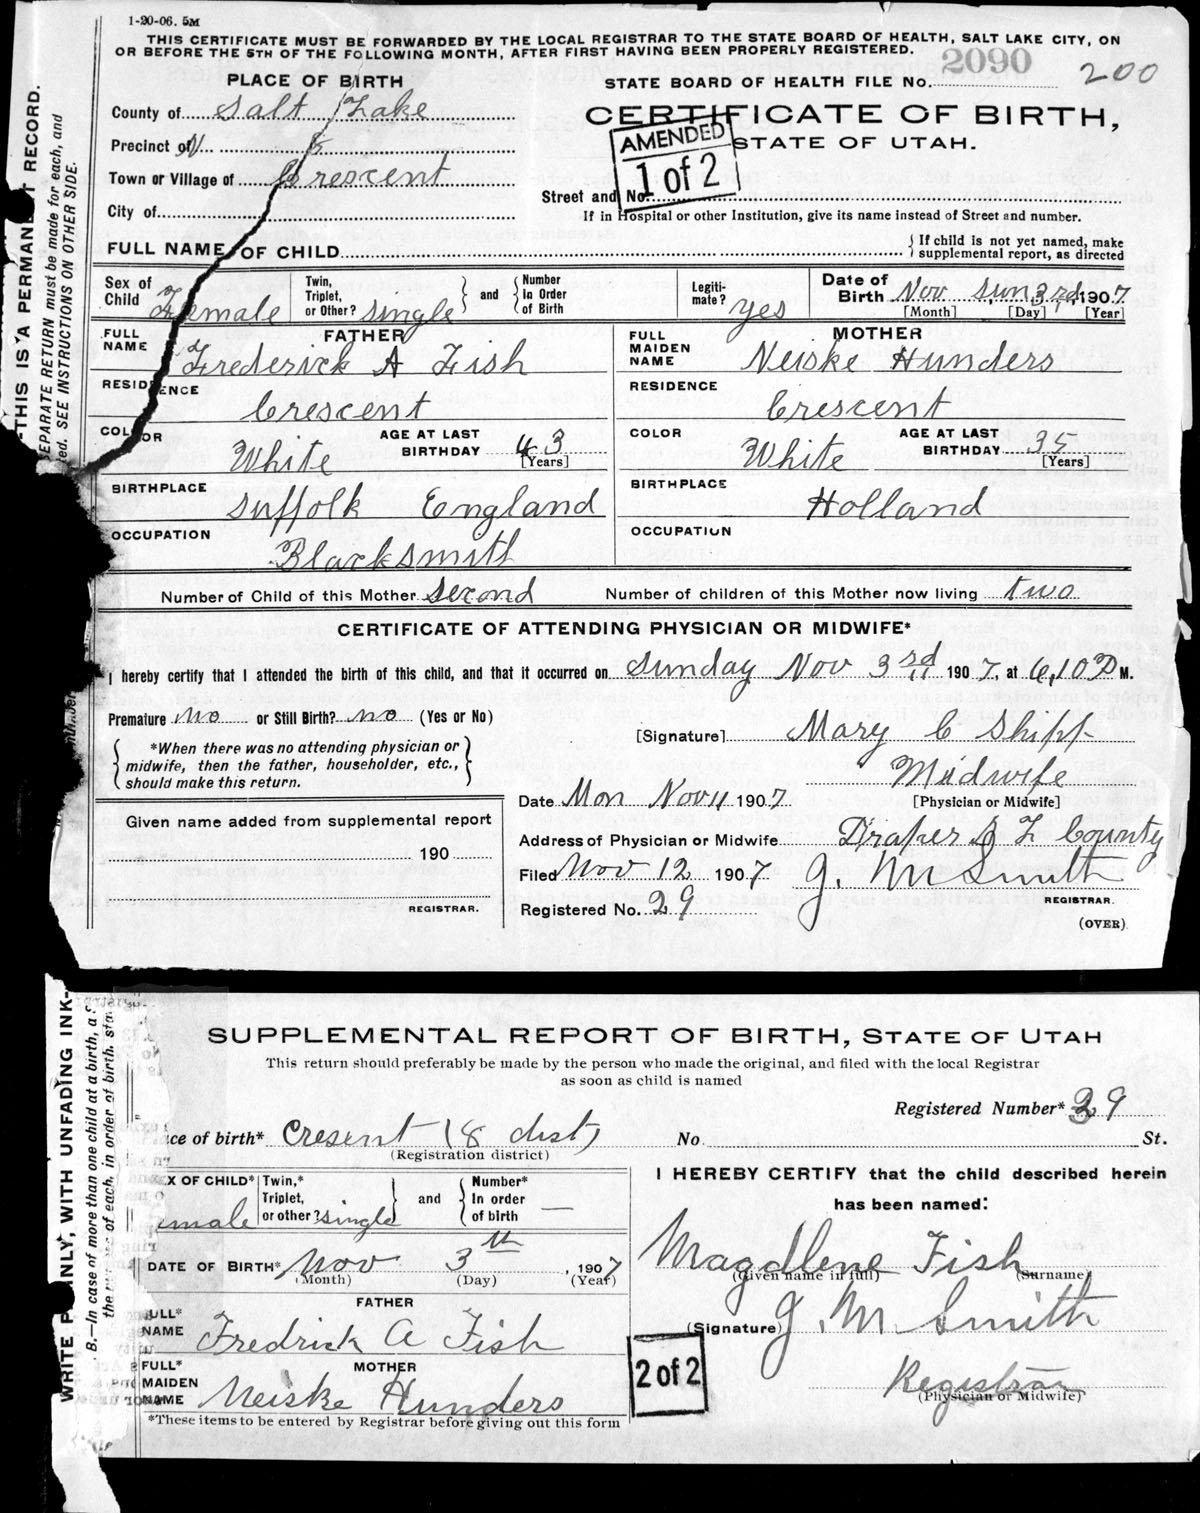 1-20-06. 5M
THIS CERTIFICATE MUST BE FORWARDED BY THE LOCAL REGISTRAR TO THE STATE BOARD OF HEALTH, SALT LAKE CITY, ON
OR BEFORE THE 5TH OF THE FOLLOWING MONTH, AFTER FIRST HAVING BEEN PROPERLY REGISTERED.
PLACE OF BIRTH
STATE BOARD OF HEALTH FILE No. 2090 200
County of Salt Lake
CERTIFICATE OF BIRTH,
STATE OF UTAH.
AMENDED
1 of 2
Precinct of
Town or Village of Crescent
Street and No.
City of
If in Hospital or other Institution, give its name instead of Street and number.
FULL NAME OF CHILD
If child is not yet named, make
supplemental report, as directed
Sex of Child Female
Twin, Triplet, or Other? single and Number In Order of Birth
Legiti-mate? yes
Date of Birth Nov Sun 3rd 1907
[Month] [Day] [Year]
FATHER
FULL NAME Frederick A Fish
RESIDENCE Crescent
COLOR White AGE AT LAST BIRTHDAY 43 [Years]
BIRTHPLACE Suffolk England
OCCUPATION Blacksmith
MOTHER
FULL MAIDEN NAME Neiske Hunders
RESIDENCE Crescent
COLOR White AGE AT LAST BIRTHDAY 35 [Years]
BIRTHPLACE Holland
OCCUPATION
Number of Child of this Mother second Number of children of this Mother now living two
CERTIFICATE OF ATTENDING PHYSICIAN OR MIDWIFE*
I hereby certify that I attended the birth of this child, and that it occurred on Sunday Nov 3rd 1907, at 6,10 P M.
Premature no or Still Birth? no (Yes or No)
*When there was no attending physician or
midwife, then the father, householder, etc.,
should make this return.
[Signature] Mary C Shipp
Midwife
[Physician or Midwife]
Date Mon Nov 11 1907
Given name added from supplemental report
190
REGISTRAR.
Address of Physician or Midwife Draper S L County
Filed Nov 12 1907 J. M Smith
REGISTRAR.
Registered No. 29
(OVER)
THIS IS A PERMANENT RECORD.
SEPARATE RETURN must be made for each, and
ted. SEE INSTRUCTIONS ON OTHER SIDE.
SUPPLEMENTAL REPORT OF BIRTH, STATE OF UTAH
This return should preferably be made by the person who made the original, and filed with the local Registrar
as soon as child is named
Registered Number* 29
ce of birth* Cresent (8 dist)
(Registration district)
No. St.
EX OF CHILD* emale
Twin,* Triplet, or other? single and Number* In order of birth —
DATE OF BIRTH* Nov 3th, 1907
(Month) (Day) (Year)
FATHER
FULL* NAME Fredrick A Fish
MOTHER
FULL* MAIDEN NAME Neiske Hunders
*These items to be entered by Registrar before giving out this form
I HEREBY CERTIFY that the child described herein
has been named:
Magdlene Fish
(Given name in full) (Surname)
(Signature) J. M Smith
Registrar
(Physician or Midwife)
2 of 2
WRITE PLAINLY, WITH UNFADING INK-
B.—In case of more than one child at a birth, a S
of each, in order of birth, sta